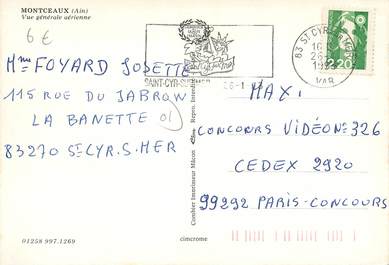 MONTCEAUX (Ain)
Vue générale aérienne
6 €
Mme FOYARD JOSETTE
115 RUE DU JABRON
LA BANETTE 01
83270 ST CYR.S.MER
MAXI
CONCOURS VIDÉO N° 326
CEDEX 2920
99292 PARIS-CONCOURS
83 ST CYR
16
26
VAR
2,20
SAINT-CYR
Combier Imprimeur Mâcon
01258 997.1269
cimcrome